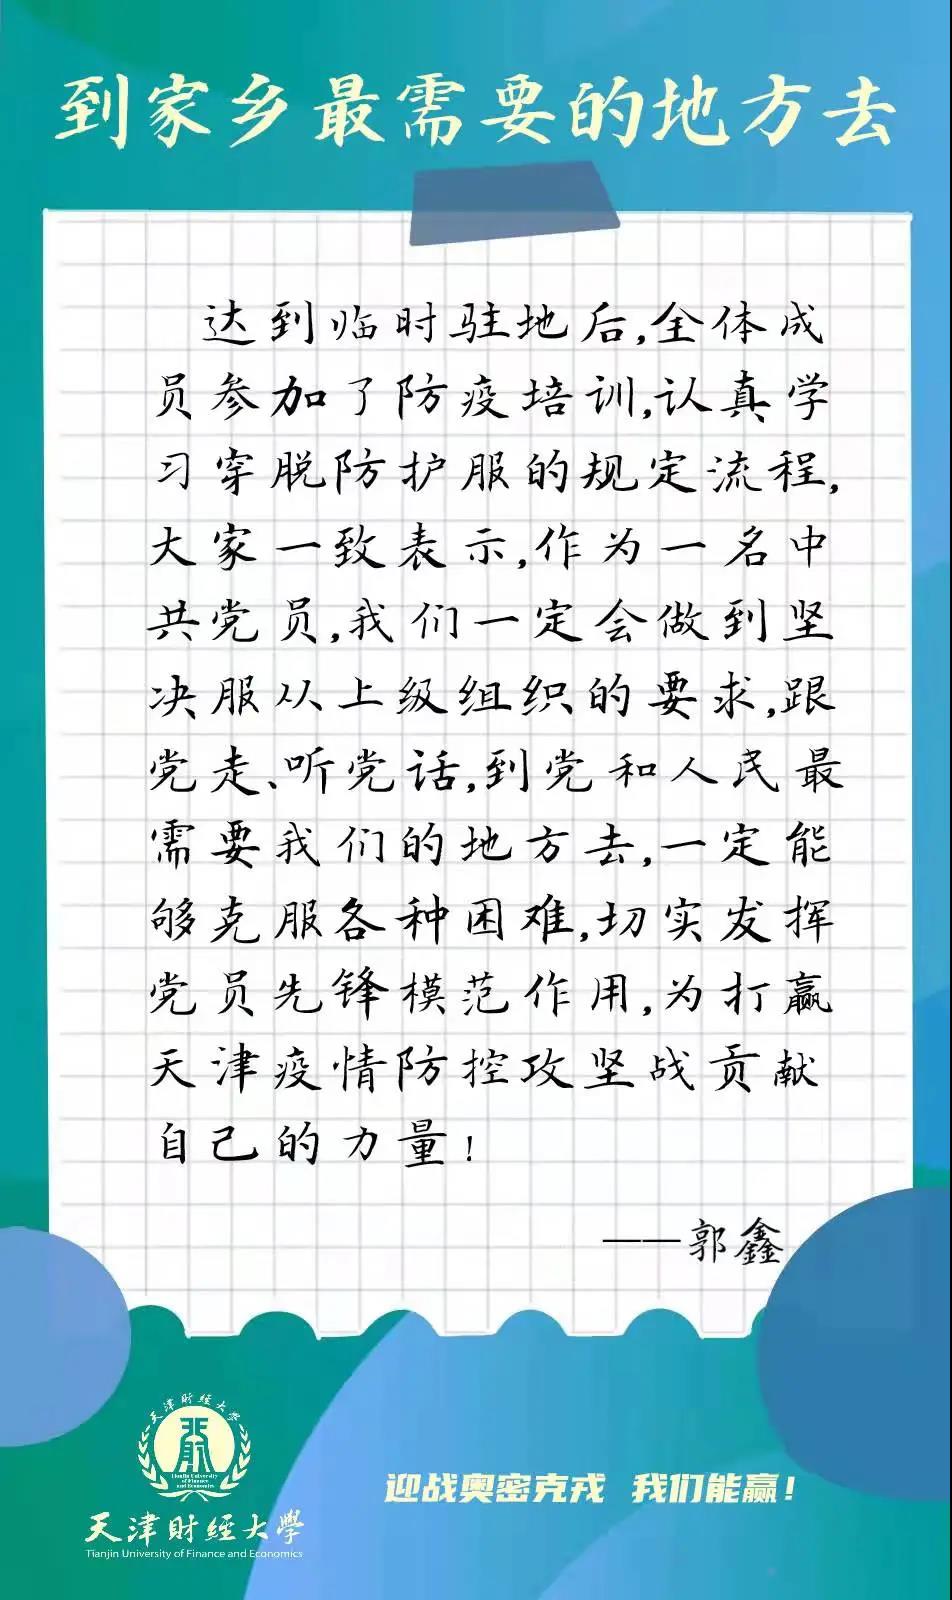 到家乡最需要的地方去
达到临时驻地后,全体成
员参加了防疫培训,认真学
习穿脱防护服的规定流程,
大家一致表示,作为一名中
共党员,我们一定会做到坚
决服从上级组织的要求,跟
党走、听党话,到党和人民最
需要我们的地方去,一定能
够克服各种困难,切实发挥
党员先锋模范作用,为打赢
天津疫情防控攻坚战贡献
自己的力量!
——郭鑫
天津财经大学
Tianjin University
of Finance
and Economics
天津财经大学
Tianjin University of Finance and Economics
迎战奥密克戎 我们能赢!